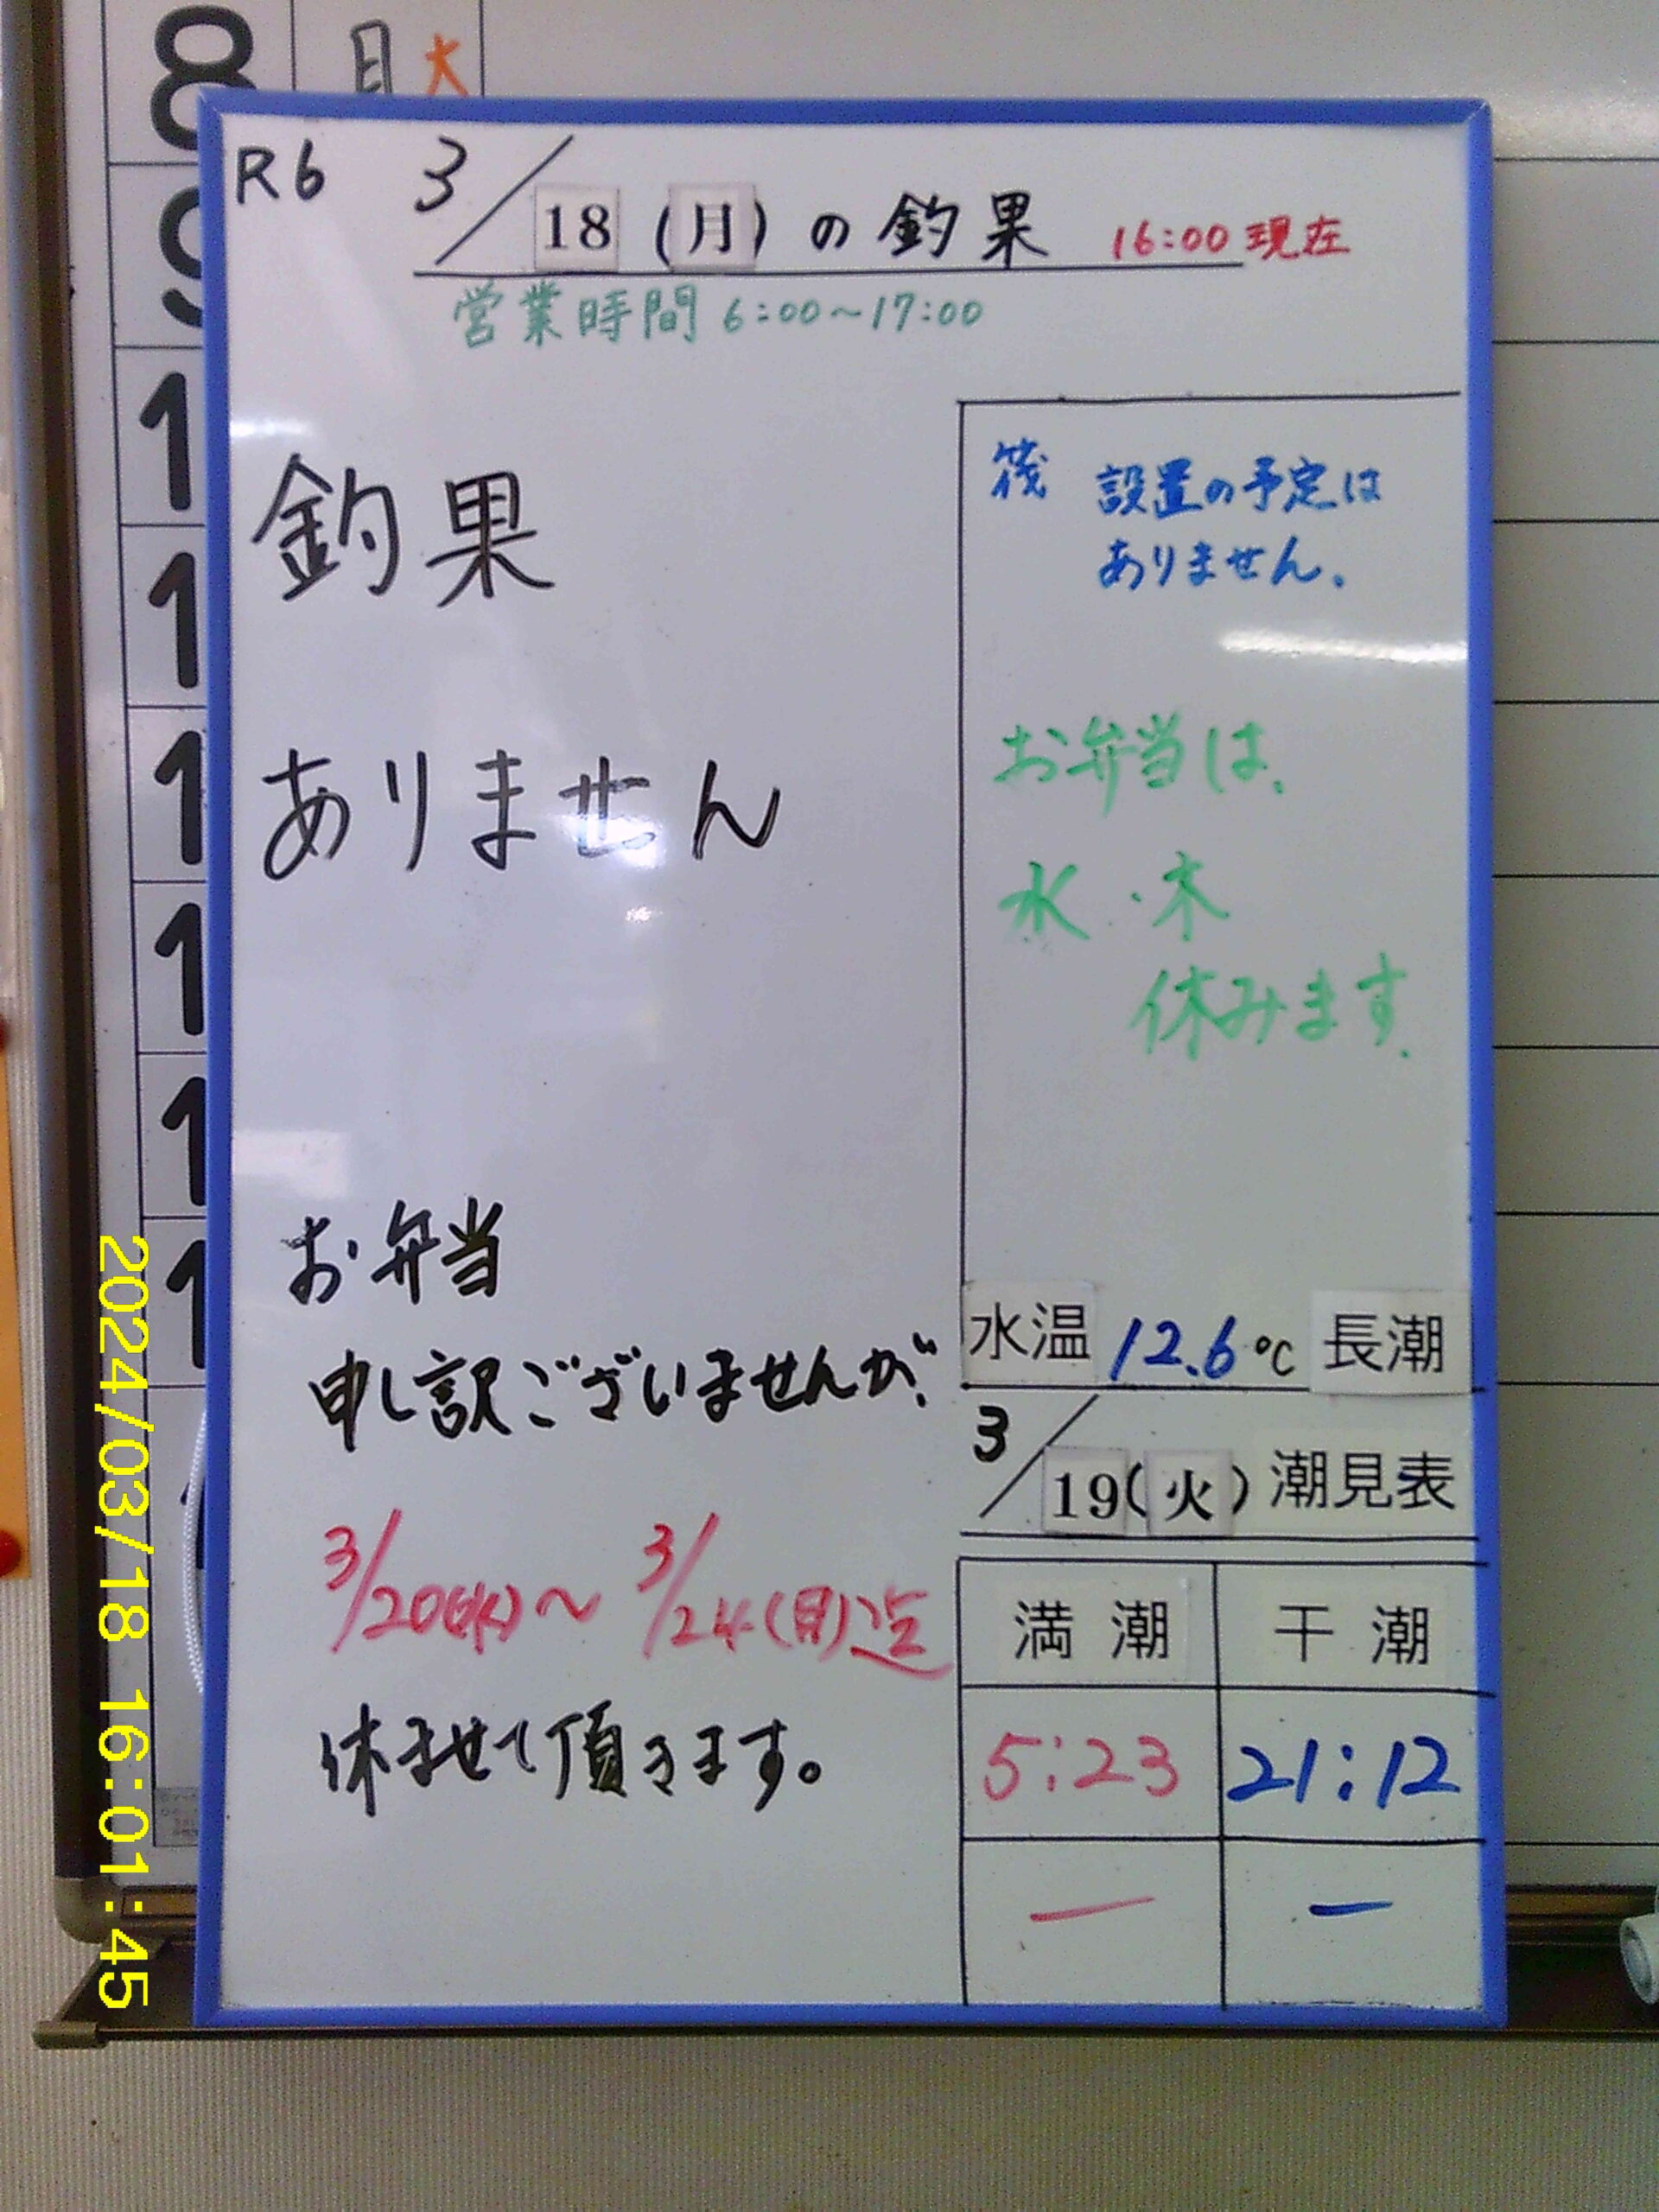 8 月 火
R6 3/18 (月) の釣果 16:00現在
営業時間 6:00~17:00
釣果
ありません
お弁当
申し訳ございませんが、
3/20(水)~3/24(日)迄
休ませて頂きます。
筏 設置の予定は
ありません。
お弁当は、
水・木
休みます.
水温 12.6℃ 長潮
3/19(火) 潮見表
満潮 干潮
5:23 21:12
— —
9
1
1
1
1
1
1
2024/03/18 16:01:45